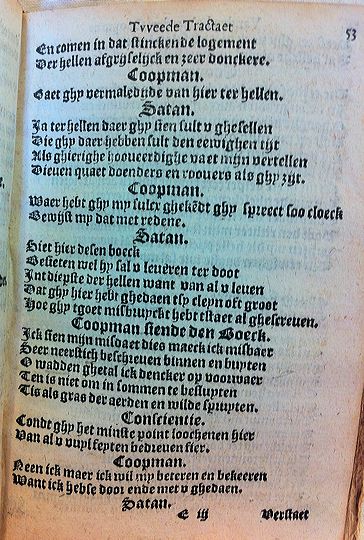 Tvveede Tractaet
53
En comen in dat stinckende logement
Der hellen afgrijselijck en zeer donckere.
Coopman.
Gaet ghy vermaledijde van hier ter hellen.
Satan.
Ja ter hellen daer ghy sien sult v ghesellen
Die ghy daer hebben sult den eewighen tijt
Als ghierighe hooveerdighe vaet mijn vertellen
Dieuen quaet doenders en roouers als ghy zijt.
Coopman.
Waer hebt ghy my sulcx ghekēdt ghy spreect soo cloeck
Bewijst my dat met redene.
Satan.
Siet hier desen boeck
Besieten wel hy sal v leueren ter doot
Int diepste der hellen want van al v leuen
Dat ghy hier hebt ghedaen tsy cleyn oft groot
Hoe ghy tgoet misbruyckt hebt tstaet al ghescreuen.
Coopman siende den Boeck.
Ick sien mijn misdaet dies maeck ick misbaer
Seer neerstich beschreuen binnen en buyten
O wadden ghetal ick dencker op voorwaer
Ten is niet om in sommen te besluyten
Tis als gras der aerden en wilde spruyten.
Conscientie.
Condt ghy het minste point loochenen hier
Van al v vuyl feyten bedreuen fier.
Coopman.
Neen ick maer ick wil my beteren en bekeeren
Want ick hebse door ende met v ghedaen.
Satan.
E iij
Verstaet